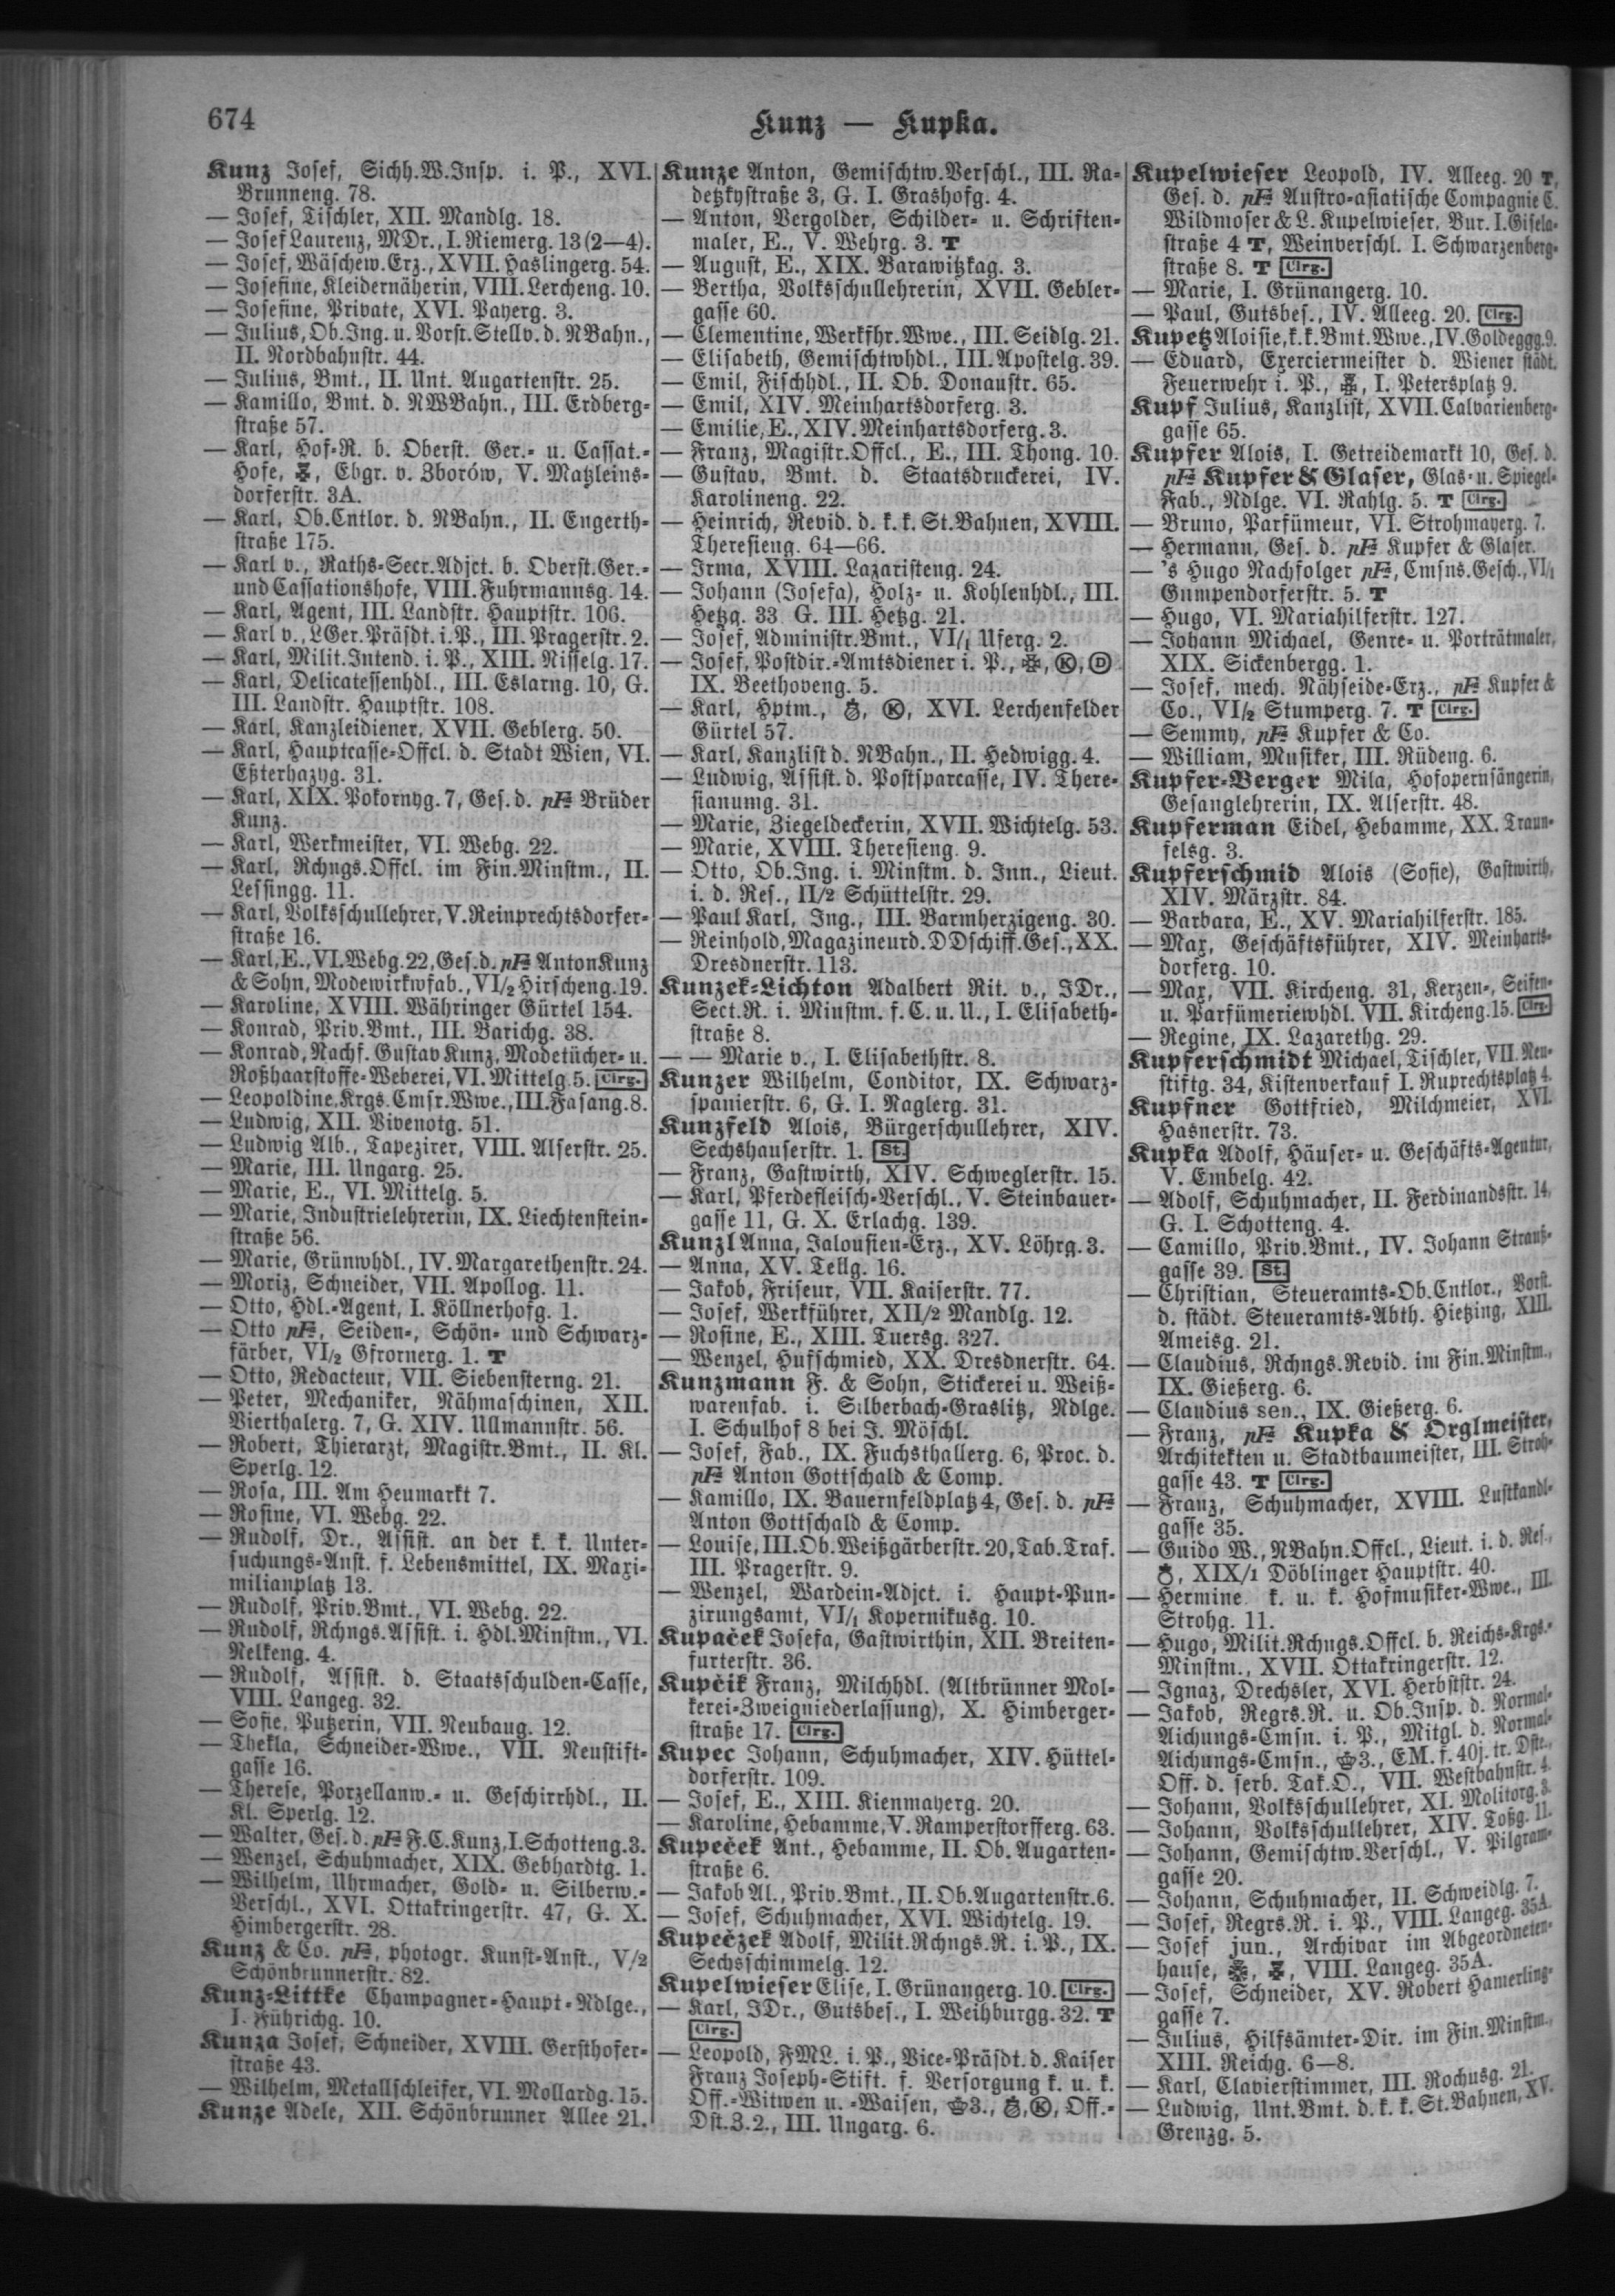 674
Kunz — Kupka.
Kunz Josef, Sichh.W.Insp. i. P., XVI.
Brunneng. 78.
— Josef, Tischler, XII. Mandlg. 18.
— Josef Laurenz, MDr., I. Riemerg. 13 (2—4).
— Josef, Wäschew.Erz., XVII. Haslingerg. 54.
— Josefine, Kleidernäherin, VIII. Lercheng. 10.
— Josefine, Private, XVI. Payerg. 3.
— Julius, Ob.Ing. u. Vorst.Stellv. d. NBahn.,
II. Nordbahnstr. 44.
— Julius, Bmt., II. Unt. Augartenstr. 25.
— Kamillo, Bmt. d. NWBahn., III. Erdberg-
straße 57.
— Karl, Hof-R. b. Oberst. Ger.- u. Cassat.-
Hofe, Ebgr. v. Zborów, V. Matzleins-
dorferstr. 3A.
— Karl, Ob.Cntlor. d. NBahn., II. Engerth-
straße 175.
— Karl v., Raths-Secr.Adjct. b. Oberst.Ger.-
und Cassationshofe, VIII. Fuhrmannsg. 14.
— Karl, Agent, III. Landstr. Hauptstr. 106.
— Karl v., LGer.Präsdt. i. P., III. Pragerstr. 2.
— Karl, Milit.Intend. i. P., XIII. Nisselg. 17.
— Karl, Delicatessenhdl., III. Eslarng. 10, G.
III. Landstr. Hauptstr. 108.
— Karl, Kanzleidiener, XVII. Geblerg. 50.
— Karl, Hauptcasse-Offcl. d. Stadt Wien, VI.
Eßterhazyg. 31.
— Karl, XIX. Pokornyg. 7, Ges. d. pF Brüder
Kunz.
— Karl, Werkmeister, VI. Webg. 22.
— Karl, Rchngs.Offcl. im Fin.Minstm., II.
Lessingg. 11.
— Karl, Volksschullehrer, V. Reinprechtsdorfer-
straße 16.
— Karl, E., VI. Webg. 22, Ges. d. pF Anton Kunz
& Sohn, Modewirkwfab., VI/2 Hirscheng. 19.
— Karoline, XVIII. Währinger Gürtel 154.
— Konrad, Priv.Bmt., III. Barichg. 38.
— Konrad, Nachf. Gustav Kunz, Modetücher- u.
Roßhaarstoffe-Weberei, VI. Mittelg. 5. Clrg.
— Leopoldine, Krgs.Cmsr.Wwe., III. Fasang. 8.
— Ludwig, XII. Vivenotg. 51.
— Ludwig Alb., Tapezirer, VIII. Alserstr. 25.
— Marie, III. Ungarg. 25.
— Marie, E., VI. Mittelg. 5.
— Marie, Industrielehrerin, IX. Liechtenstein-
straße 56.
— Marie, Grünwhdl., IV. Margarethenstr. 24.
— Moriz, Schneider, VII. Apollog. 11.
— Otto, Hdl.-Agent, I. Köllnerhofg. 1.
— Otto pF, Seiden-, Schön- und Schwarz-
färber, VI/2 Gfrornerg. 1. T
— Otto, Redacteur, VII. Siebensterng. 21.
— Peter, Mechaniker, Nähmaschinen, XII.
Vierthalerg. 7, G. XIV. Ullmannstr. 56.
— Robert, Thierarzt, Magistr.Bmt., II. Kl.
Sperlg. 12.
— Rosa, III. Am Heumarkt 7.
— Rosine, VI. Webg. 22.
— Rudolf, Dr., Assist. an der k. k. Unter-
suchungs-Anst. f. Lebensmittel, IX. Maxi-
milianplatz 13.
— Rudolf, Priv.Bmt., VI. Webg. 22.
— Rudolf, Rchngs.Assist. i. Hdl.Minstm., VI.
Nelkeng. 4.
— Rudolf, Assist. d. Staatsschulden-Casse,
VIII. Langeg. 32.
— Sofie, Putzerin, VII. Neubaug. 12.
— Thekla, Schneider-Wwe., VII. Neustift-
gasse 16.
— Therese, Porzellanw.- u. Geschirrhdl., II.
Kl. Sperlg. 12.
— Walter, Ges. d. pF F. C. Kunz, I. Schotteng. 3.
— Wenzel, Schuhmacher, XIX. Gebhardtg. 1.
— Wilhelm, Uhrmacher, Gold- u. Silberw.-
Verschl., XVI. Ottakringerstr. 47, G. X.
Himbergerstr. 28.
Kunz & Co. pF, photogr. Kunst-Anst., V/2
Schönbrunnerstr. 82.
Kunz-Littke Champagner-Haupt-Ndlge.,
I. Führichg. 10.
Kunza Josef, Schneider, XVIII. Gersthofer-
straße 43.
— Wilhelm, Metallschleifer, VI. Mollardg. 15.
Kunze Adele, XII. Schönbrunner Allee 21.
Kunze Anton, Gemischtw.Verschl., III. Ra-
detzkystraße 3, G. I. Grashofg. 4.
— Anton, Vergolder, Schilder- u. Schriften-
maler, E., V. Wehrg. 3. T
— August, E., XIX. Barawitzkag. 3.
— Bertha, Volksschullehrerin, XVII. Gebler-
gasse 60.
— Clementine, Werkfhr.Wwe., III. Seidlg. 21.
— Elisabeth, Gemischtwhdl., III. Apostelg. 39.
— Emil, Fischhdl., II. Ob. Donaustr. 65.
— Emil, XIV. Meinhartsdorferg. 3.
— Emilie, E., XIV. Meinhartsdorferg. 3.
— Franz, Magistr.Offcl., E., III. Thong. 10.
— Gustav, Bmt. d. Staatsdruckerei, IV.
Karolineng. 22.
— Heinrich, Revid. d. k. k. St.Bahnen, XVIII.
Theresieng. 64—66.
— Irma, XVIII. Lazaristeng. 24.
— Johann (Josefa), Holz- u. Kohlenhdl., III.
Hetzg. 33 G. III. Hetzg. 21.
— Josef, Administr.Bmt., VI/1 Uferg. 2.
— Josef, Postdir.-Amtsdiener i. P., Ⓚ, Ⓓ
IX. Beethoveng. 5.
— Karl, Hptm., Ⓚ, XVI. Lerchenfelder
Gürtel 57.
— Karl, Kanzlist d. NBahn., II. Hedwigg. 4.
— Ludwig, Assist. d. Postsparcasse, IV. There-
sianumg. 31.
— Marie, Ziegeldeckerin, XVII. Wichtelg. 53.
— Marie, XVIII. Theresieng. 9.
— Otto, Ob.Ing. i. Minstm. d. Inn., Lieut.
i. d. Res., II/2 Schüttelstr. 29.
— Paul Karl, Ing., III. Barmherzigeng. 30.
— Reinhold, Magazineur d. DDschiff.Ges., XX.
Dresdnerstr. 113.
Kunzek-Lichton Adalbert Rit. v., JDr.,
Sect.R. i. Minstm. f. C. u. U., I. Elisabeth-
straße 8.
— — Marie v., I. Elisabethstr. 8.
Kunzer Wilhelm, Conditor, IX. Schwarz-
spanierstr. 6, G. I. Naglerg. 31.
Kunzfeld Alois, Bürgerschullehrer, XIV.
Sechshauserstr. 1. St.
— Franz, Gastwirth, XIV. Schweglerstr. 15.
— Karl, Pferdefleisch-Verschl., V. Steinbauer-
gasse 11, G. X. Erlachg. 139.
Kunzl Anna, Jalousien-Erz., XV. Löhrg. 3.
— Anna, XV. Tellg. 16.
— Jakob, Friseur, VII. Kaiserstr. 77.
— Josef, Werkführer, XII/2 Mandlg. 12.
— Rosine, E., XIII. Tuersg. 327.
— Wenzel, Hufschmied, XX. Dresdnerstr. 64.
Kunzmann F. & Sohn, Stickerei u. Weiß-
warenfab. i. Silberbach-Graslitz, Ndlge.
I. Schulhof 8 bei J. Möschl.
— Josef, Fab., IX. Fuchsthallerg. 6, Proc. d.
pF Anton Gottschald & Comp.
— Kamillo, IX. Bauernfeldplatz 4, Ges. d. pF
Anton Gottschald & Comp.
— Louise, III. Ob. Weißgärberstr. 20, Tab.Traf.
III. Pragerstr. 9.
— Wenzel, Wardein-Adjct. i. Haupt-Pun-
zirungsamt, VI/1 Kopernikusg. 10.
Kupaček Josefa, Gastwirthin, XII. Breiten-
furterstr. 36.
Kupčik Franz, Milchhdl. (Altbrünner Mol-
kerei-Zweigniederlassung), X. Himberger-
straße 17. Clrg.
Kupec Johann, Schuhmacher, XIV. Hüttel-
dorferstr. 109.
— Josef, E., XIII. Kienmayerg. 20.
— Karoline, Hebamme, V. Ramperstorfferg. 63.
Kupeček Ant., Hebamme, II. Ob. Augarten-
straße 6.
— Jakob Al., Priv.Bmt., II. Ob. Augartenstr. 6.
— Josef, Schuhmacher, XVI. Wichtelg. 19.
Kupeczek Adolf, Milit.Rchngs.R. i. P., IX.
Sechsschimmelg. 12.
Kupelwieser Elise, I. Grünangerg. 10. Clrg.
— Karl, JDr., Gutsbes., I. Weihburgg. 32. T
Clrg.
— Leopold, FML. i. P., Vice-Präsdt. d. Kaiser
Franz Joseph-Stift. f. Versorgung k. u. k.
Off.-Witwen u. -Waisen, 3., Ⓚ, Off.-
Dst.Z.2., III. Ungarg. 6.
Kupelwieser Leopold, IV. Alleeg. 20 T,
Ges. d. pF Austro-asiatische Compagnie C.
Wildmoser & L. Kupelwieser, Bur. I. Gisela-
straße 4 T, Weinverschl. I. Schwarzenberg-
straße 8. T Clrg.
— Marie, I. Grünangerg. 10.
— Paul, Gutsbes., IV. Alleeg. 20. Clrg.
Kupetz Aloisie, k. k. Bmt.Wwe., IV. Goldeggg. 9.
— Eduard, Exerciermeister d. Wiener städt.
Feuerwehr i. P., I. Petersplatz 9.
Kupf Julius, Kanzlist, XVII. Calvarienberg-
gasse 65.
Kupfer Alois, I. Getreidemarkt 10, Ges. d.
pF Kupfer & Glaser, Glas- u. Spiegel-
Fab., Ndlge. VI. Rahlg. 5. T Clrg.
— Bruno, Parfümeur, VI. Strohmayerg. 7.
— Hermann, Ges. d. pF Kupfer & Glaser.
— 's Hugo Nachfolger pF, Cmsns.Gesch., VI/1
Gumpendorferstr. 5. T
— Hugo, VI. Mariahilferstr. 127.
— Johann Michael, Genre- u. Porträtmaler,
XIX. Sickenbergg. 1.
— Josef, mech. Nähseide-Erz., pF Kupfer &
Co., VI/2 Stumperg. 7. T Clrg.
— Semmy, pF Kupfer & Co.
— William, Musiker, III. Rüdeng. 6.
Kupfer-Berger Mila, Hofopernsängerin,
Gesanglehrerin, IX. Alserstr. 48.
Kupferman Eidel, Hebamme, XX. Traun-
felsg. 3.
Kupferschmid Alois (Sofie), Gastwirth,
XIV. Märzstr. 84.
— Barbara, E., XV. Mariahilferstr. 185.
— Max, Geschäftsführer, XIV. Meinharts-
dorferg. 10.
— Max, VII. Kircheng. 31, Kerzen-, Seifen-
u. Parfümeriewhdl. VII. Kircheng. 15. Clrg.
— Regine, IX. Lazarethg. 29.
Kupferschmidt Michael, Tischler, VII. Neu-
stiftg. 34, Kistenverkauf I. Ruprechtsplatz 4.
Kupfner Gottfried, Milchmeier, XVI.
Hasnerstr. 73.
Kupka Adolf, Häuser- u. Geschäfts-Agentur,
V. Embelg. 42.
— Adolf, Schuhmacher, II. Ferdinandsstr. 14,
G. I. Schotteng. 4.
— Camillo, Priv.Bmt., IV. Johann Strauß-
gasse 39. St.
— Christian, Steueramts-Ob.Cntlor., Vorst.
d. städt. Steueramts-Abth. Hietzing, XIII.
Ameisg. 21.
— Claudius, Rchngs.Revid. im Fin.Minstm.,
IX. Gießerg. 6.
— Claudius sen., IX. Gießerg. 6.
— Franz, pF Kupka & Orglmeister,
Architekten u. Stadtbaumeister, III. Stroh-
gasse 43. T Clrg.
— Franz, Schuhmacher, XVIII. Lustkandl-
gasse 35.
— Guido W., NBahn.Offcl., Lieut. i. d. Res.,
XIX/1 Döblinger Hauptstr. 40.
— Hermine k. u. k. Hofmusiker-Wwe., III.
Strohg. 11.
— Hugo, Milit.Rchngs.Offcl. b. Reichs-Krgs.-
Minstm., XVII. Ottakringerstr. 12.
— Ignaz, Drechsler, XVI. Herbststr. 24.
— Jakob, Regrs.R. u. Ob.Insp. d. Normal-
Aichungs-Cmsn. i. P., Mitgl. d. Normal-
Aichungs-Cmsn., 3., EM. f. 40j. tr. Dste.,
Off. d. serb. Tak.O., VII. Westbahnstr. 4.
— Johann, Volksschullehrer, XI. Molitorg. 3.
— Johann, Volksschullehrer, XIV. Toßg. 11.
— Johann, Gemischtw.Verschl., V. Pilgram-
gasse 20.
— Johann, Schuhmacher, II. Schweidlg. 7.
— Josef, Regrs.R. i. P., VIII. Langeg. 35A.
— Josef jun., Archivar im Abgeordneten-
hause, VIII. Langeg. 35A.
— Josef, Schneider, XV. Robert Hamerling-
gasse 7.
— Julius, Hilfsämter-Dir. im Fin.Minstm.,
XIII. Reichg. 6—8.
— Karl, Clavierstimmer, III. Rochusg. 21.
— Ludwig, Unt.Bmt. d. k. k. St.Bahnen, XV.
Grenzg. 5.